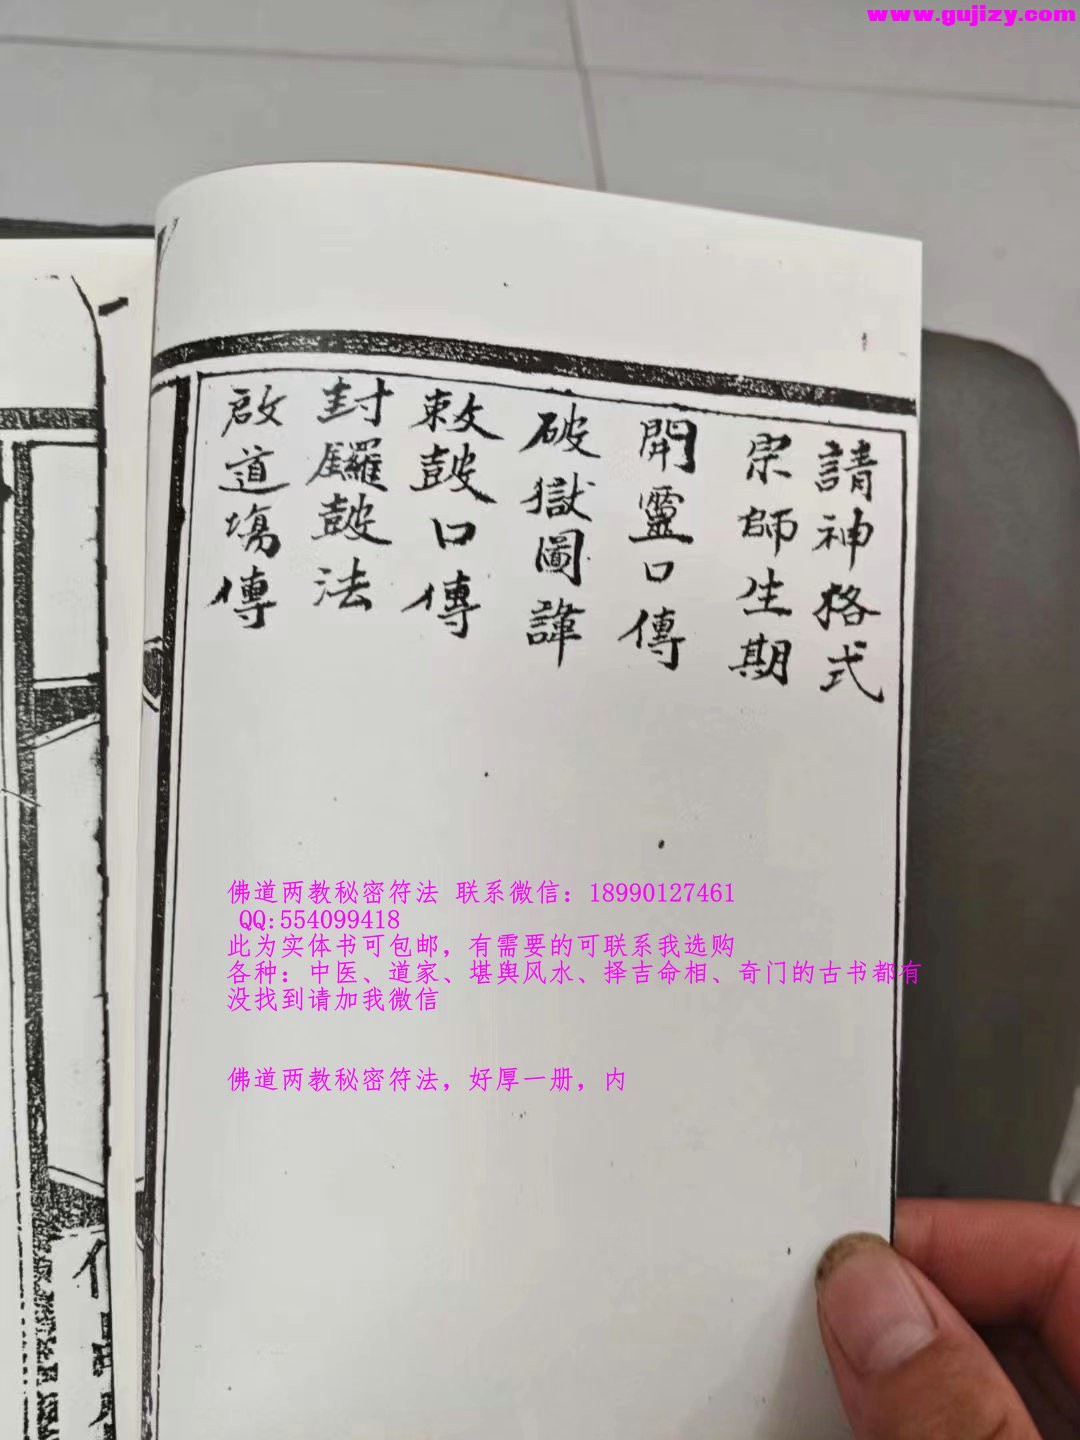 www.gujizy.com
請神格式
宗師生期
開靈口傳
破獄圖諱
敕鼓口傳
封鑼鼓法
啟道場傳
佛道两教秘密符法 联系微信：18990127461
QQ:554099418
此为实体书可包邮，有需要的可联系我选购
各种：中医、道家、堪舆风水、择吉命相、奇门的古书都有
没找到请加我微信
佛道两教秘密符法，好厚一册，内